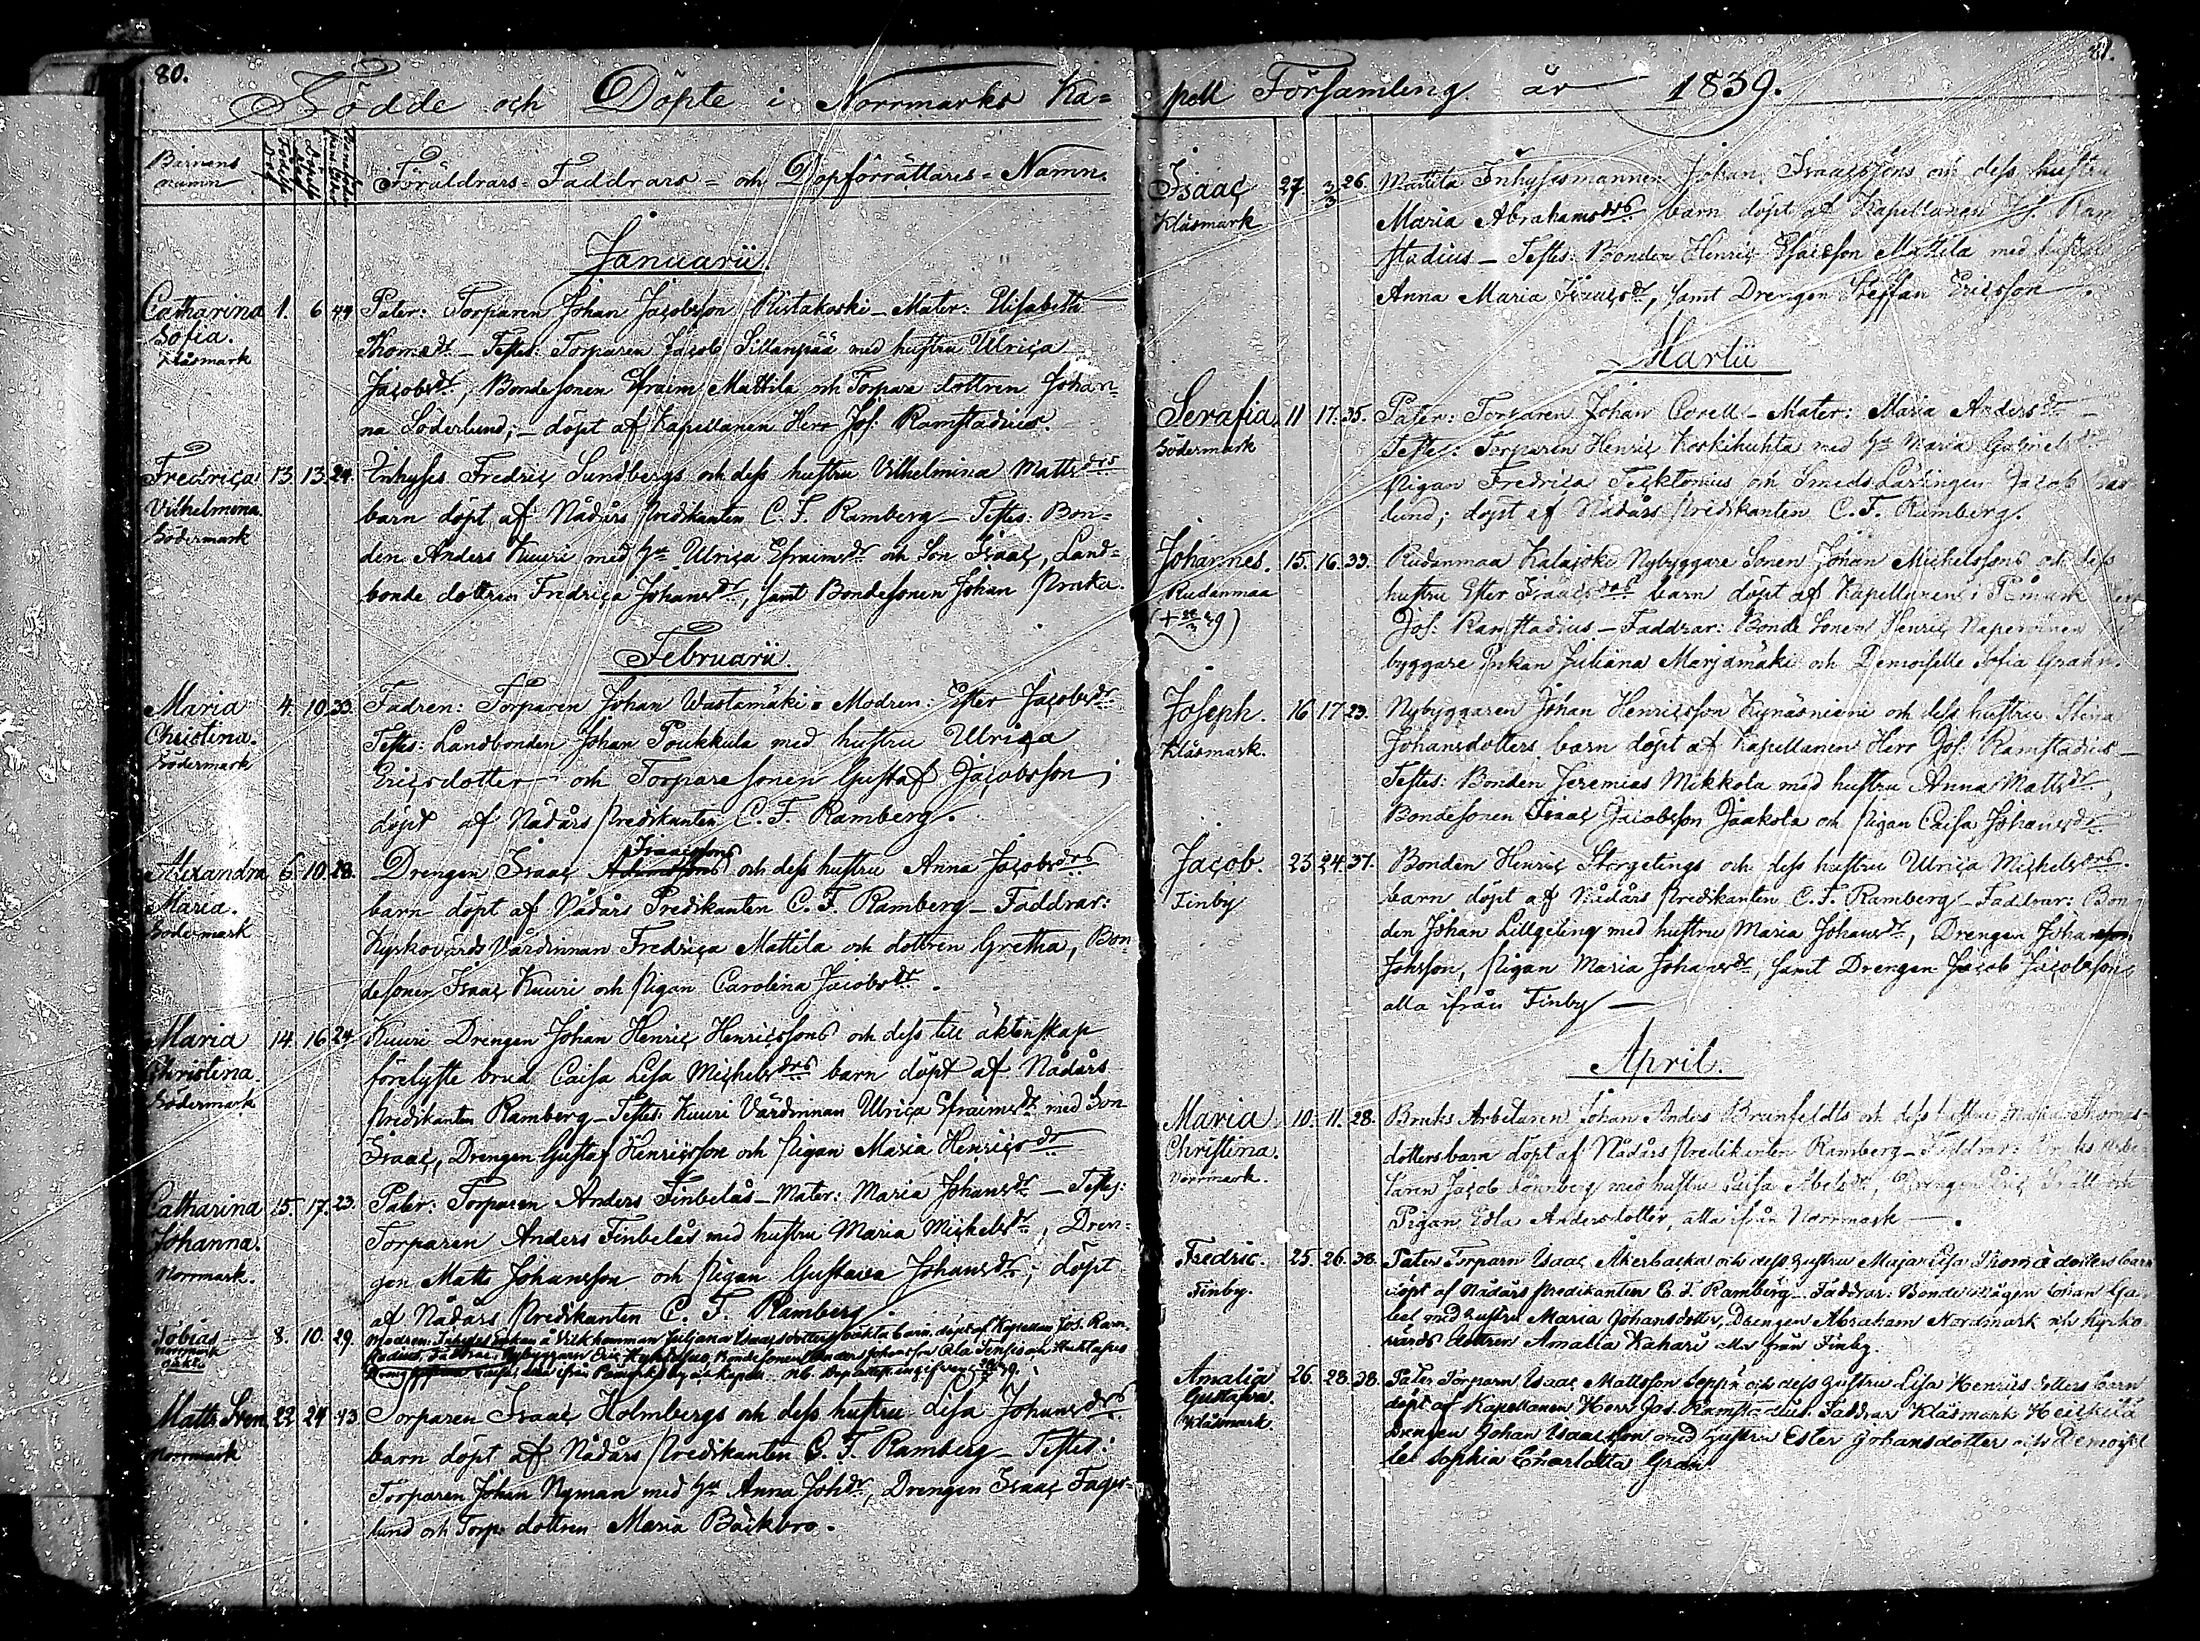 80.
Födde och Döpte i Norrmarks Ka=
Barnens namn
Föräldrars= Faddrars= och Dopförrättares= Namn.
Januarii.
Catharina 1. 6 44 Pater: Torparen Johan Jacobsson Ristakoski – Mater: Elisabeth
Sofia. Thomædr – Testes: Torparen Jacob Sillanpää med hustru Ulrica
Klåsmark Jacobsdr, Bondesonen Efraim Mattila och Torpare dottren Johan-
na Söderlund; – döpt af Kapellanen Herr Jos: Ramstadius.
Fredrica 13. 13. 24. Inhyses Fredric Sundbergs och dess hustru Vilhelmina Mattsdrs
Vilhelmina barn döpt af Nådårs Predikanten C. F. Ramberg – Testes: Bon=
Södermark den Anders Kuuri med Hu Ulrica Efraimsdr och Son Isaac, Land=
bonde dottren Fredrica Johansdr, samt Bondesonen Johan Praka.
Februarii.
Maria 4. 10. 33. Fadren: Torparen Johan Wastamäki – Modren: Ester Jacobsdr
Christina. Testes: Landbonden Johan Poukkula med hustru Ulrica
Södermark Ericsdotter – och Torpare sonen Gustaf Jacobsson;
döpt af Nådårs Predikanten C. F. Ramberg.
Isaacssons
Alexandra 6. 10. 28. Drengen Isaac Adamssons och dess hustru Anna Jacobsdrs
Maria. barn döpt af Nådårs Predikanten C. F. Ramberg – Faddrar:
Södermark Kyrkovärds Värdinnan Fredrica Mattila och dottren Gretha, Bon-
desonen Isaac Kuuri och Pigan Carolina Jacobsdr.
Maria 14. 16 24 Kuuri Drengen Johan Henric Henricssons och dess till äktenskap
Christina. förelyste brud Caisa Lisa Michelsdrs barn döpt af Nådårs
Södermark Predikanten Ramberg – Testes: Kuuri Värdinnan Ulrica Efraimsdr med Son
Isaac, Drengen Gustaf Henricsson och Pigan Maria Henricsdr
Catharina 15. 17. 23. Pater: Torparen Anders Finbelås – Mater: Maria Johansdr – Testes:
Johanna. Torparen Anders Finbelås med hustru Maria Michelsdr, Dren-
Norrmark. gen Matts Johansson och Pigan Gustava Johansdr; döpt
af Nådårs Predikanten C. F. Ramberg.
Tobias 8. 10. 29. Modren: Inhyses Enkan å Juliana Isaacsdotters oäkta barn, döpt af Kapellan Jos. Ram-
Norrmark stadius, Faddrar: Nybyggaren Eric Bondesonen Anders Johansson
oäkta
Matts Sven 22 24 43 Torparen Isaac Holmbergs och dess hustru Lisa Johansdrs
Norrmark barn döpt af Nådårs Predikanten C. F. Ramberg – Testes:
Torparen Johan Nyman med Hu Anna Johdr, Drengen Isaac Fager-
lund och Torp: dottren Maria Bäckbro.
81.
pell Församling år 1839.
Isaac 27 3/3 26. Mattila Inhysesmannen Johan Isaacssons och dess hustru
Klåsmark Maria Abrahamsdrs barn döpt af Kapellanen Jos. Ram
stadius – Testes: Bonden Henric Esaisson Mattila med hustru
Anna Maria Isaacsdr, samt Drengen Steffan Ericsson.
Martii
Serafia. 11 17. 35. Pater: Torparen Johan Corell – Mater: Maria Andersdr –
Södermark Testes: Torparen Henric Koskihuhta med Hu Maria Gabrielsdr
Pigan Fredrica Tecktonius och Smeds Läringen Jacob
lund; döpt af Nådårs Predikanten C. F. Ramberg.
Johannes. 15. 16. 33. Rudanmaa Kalajoki Nybyggare Sonen Johan Michelssons och dess
Rudanmaa hustru Ester Isaacsdrs barn döpt af Kapellanen i Påmark Herr
Jos: Ramstadius – Faddrar: Bonde Sonen Henric
byggare Enkan Juliana Marjamäki och Demoiselle Sofia Grahn.
Joseph. 16 17 23. Nybyggaren Johan Henricsson Kynäsniemi och dess hustru Stina
Klåsmark. Johansdotters barn döpt af Kapellanen Herr Jos: Ramstadius –
Testes: Bonden Jeremias Mikkola med hustru Anna Mattsdr,
Bondesonen Isaac Jacobsson Jaakola och Pigan Caisa Johansdr
Jacob. 23 24. 37. Bonden Henric Storgetings och dess hustru Ulrica Michelsdrs
Finby barn döpt af Nådårs Predikanten C. F. Ramberg – Faddrar: Bon
den Johan Lillgeting med hustru Maria Johansdr, Drengen Johan
Johsson, Pigan Maria Johansdr, samt Drengen Jacob Jacobsson,
alla ifrån Finby –
April.
Maria 10. 11. 28. Bruks Arbetaren Johan Anders Brunfeldts och dess hustru Thomas-
Christina. dotters barn döpt af Nådårs Predikanten Ramberg – Faddrar: Bruks Arbe-
Norrmark. taren Jacob Lönnberg med hustru Caisa Abelsdr, Drengen Eric och
Pigan Edla Andersdotter, alla ifrån Norrmark –.
Fredric. 25. 26. 38. Pater Torparn Isaac Åkerbacka och dess hustru Maja Lisa Thomædotters barn
Finby. döpt af Nådårs Predikanten C. F. Ramberg. Faddrar: Bonde Mågen Johan
med hustru Maria Johansdotter, Drengen Abraham Nordmark och Kyrko
värds dottren Amalia Kahari alla från Finby.
Amalia 26. 28. 38. Pater Torparn Isaac Mattsson Seppä och dess hustru Lisa Henricsdotters barn
Gustafva. döpt af Kapellanen Herr Jos. Ramstadius. Faddrar Klåsmark Heickilä
Klåsmark. Drengen Johan Isaacsson med hustru Ester Johansdotter och Demoisel
let Sophia Charlotta Gran.